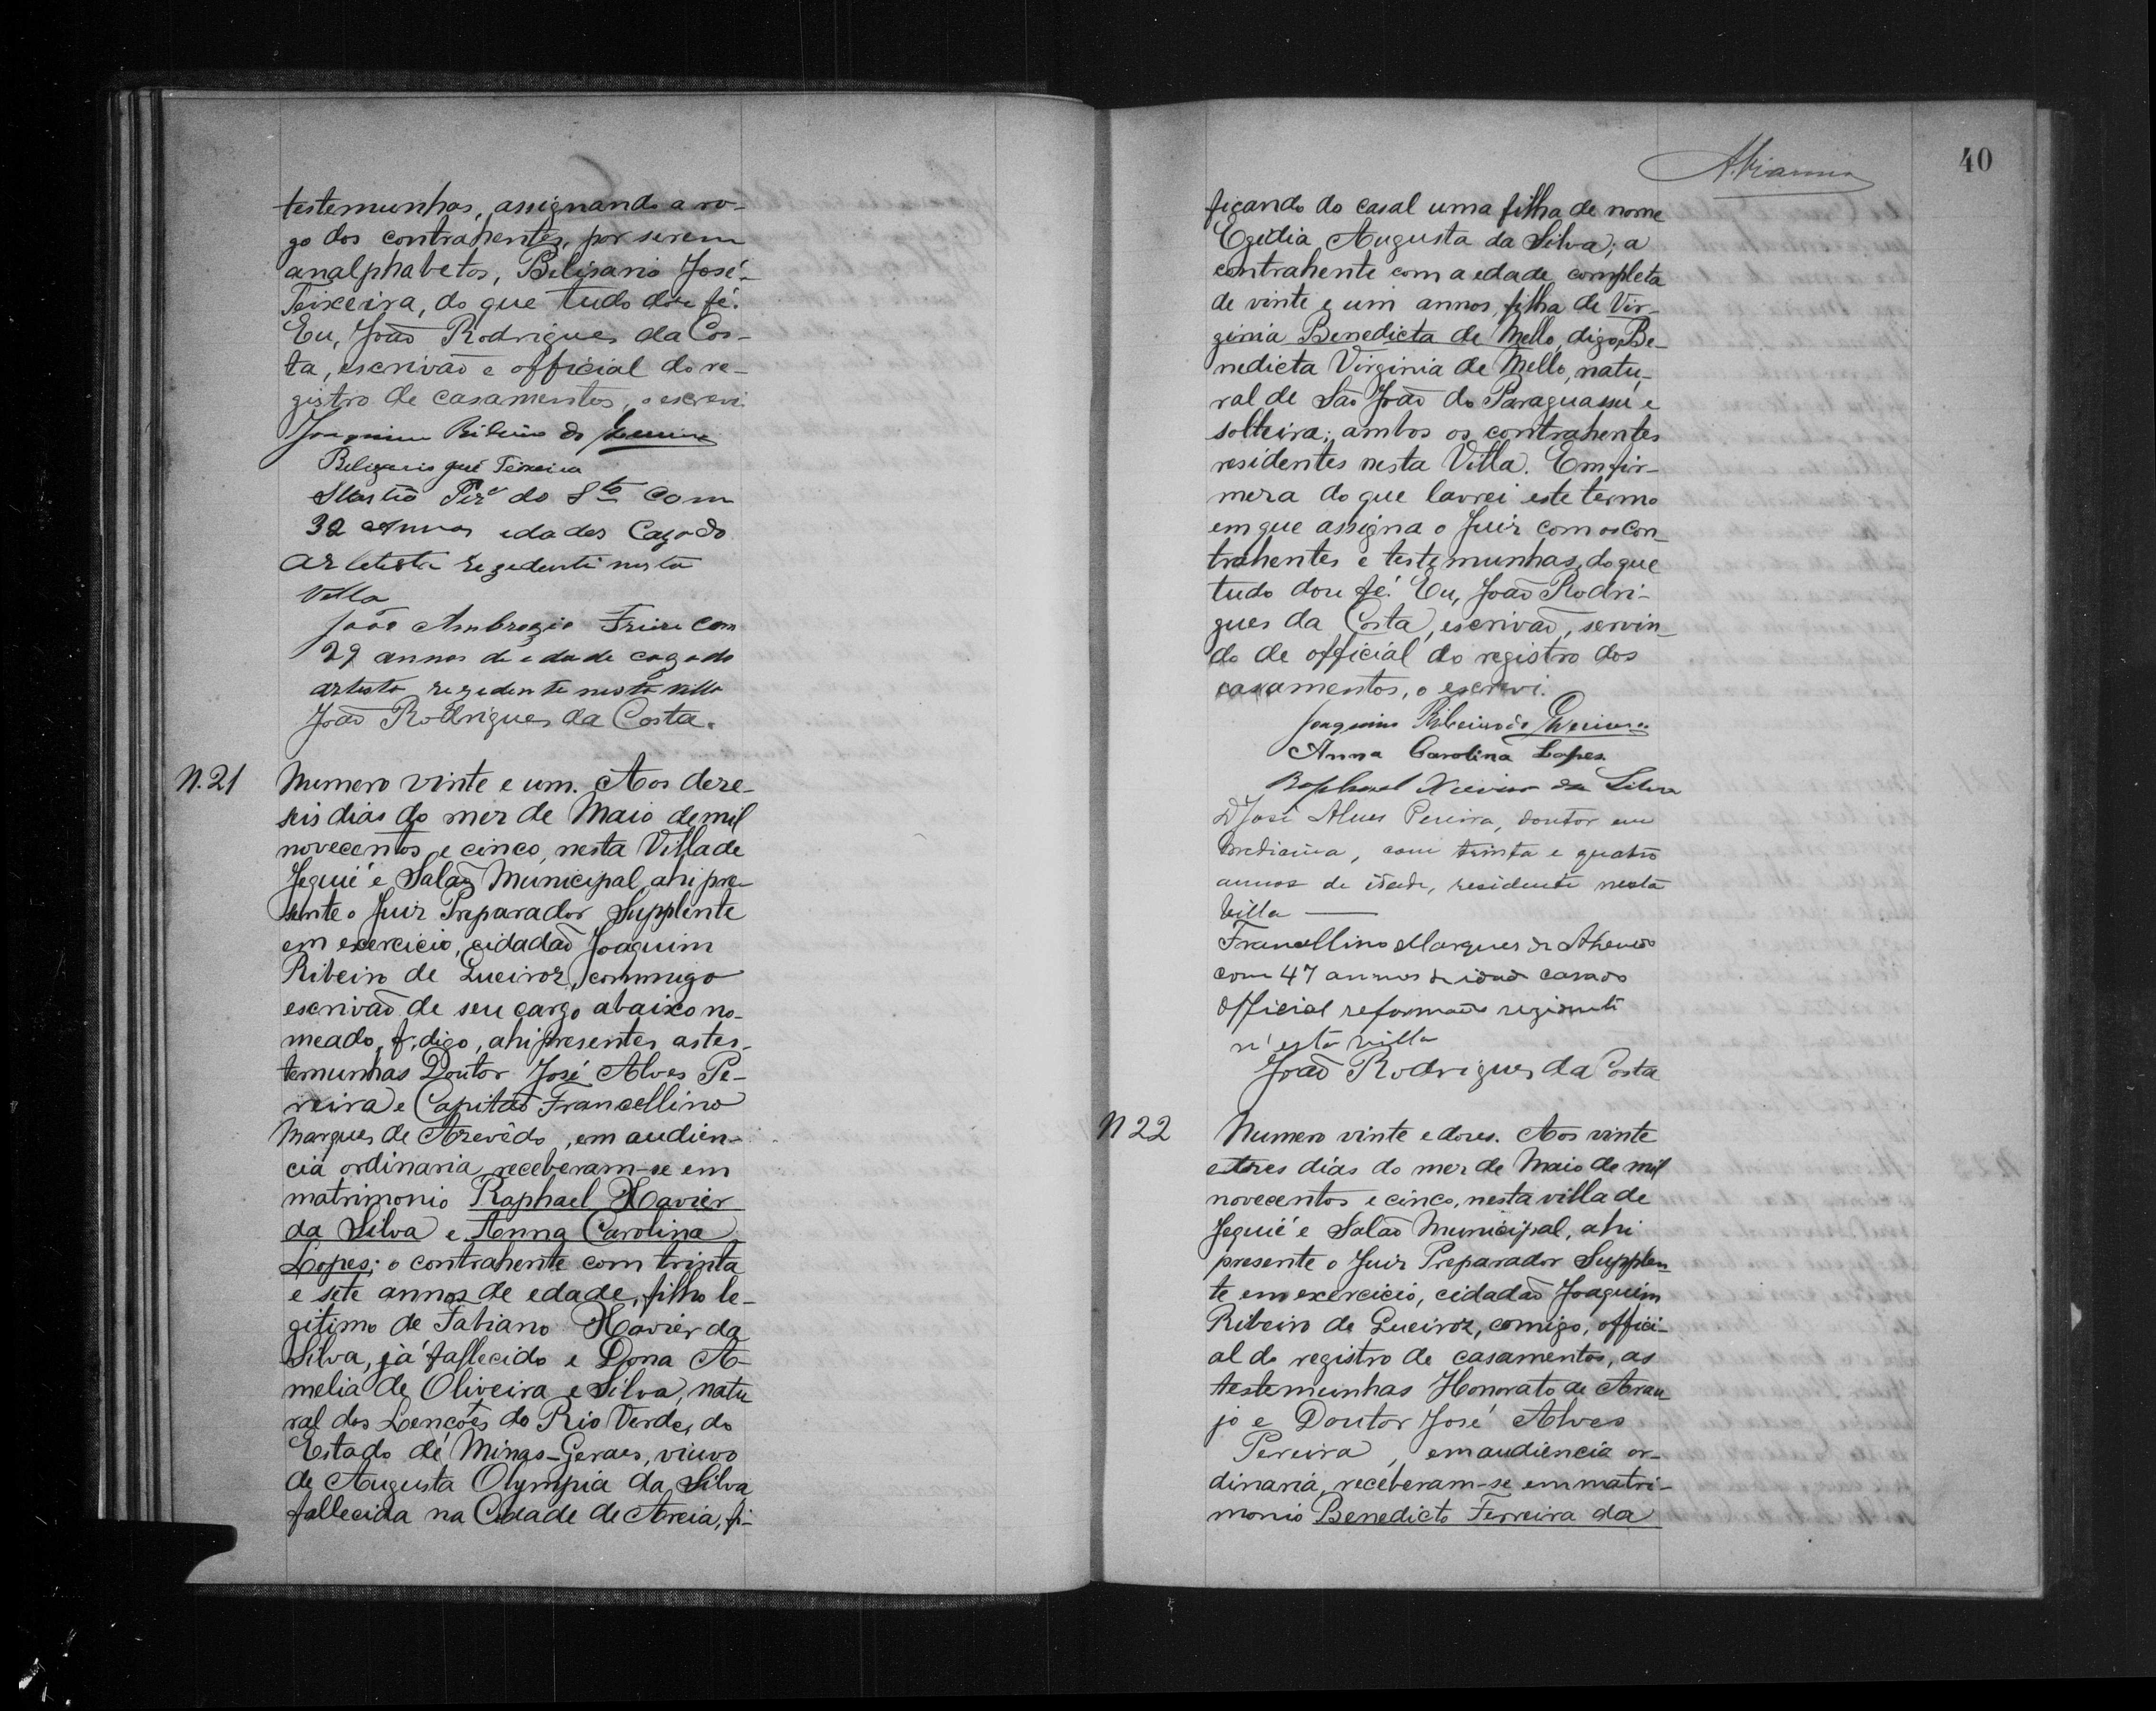 testemunhas, assignando a ro-
go dos contrahentes, por serem
analphabetos, Belisario José
Teixeira, do que tudo dou fé.
Eu, João Rodrigues da Cos-
ta, escrivão e official do re-
gistro de casamentos, o escrevi.
Joaquim Ribeiro de
Belizario José Teixeira
do Sto com
32 annos idades Cazado
artista rezedente nesta
Villa
João Ambrozio Freire com
29 annos de edade cazado
artista rezedente nesta villa
João Rodrigues da Costa.
N. 21
Numero vinte e um. Aos deze-
seis dias do mez de Maio de mil
novecentos e cinco, nesta Villa de
Jequié e Salão Municipal, ahi pre-
sente o Juiz Preparador Supplente
em exercicio, cidadão Joaquim
Ribeiro de Queiroz, commigo
escrivão de seu cargo abaixo no-
meado, f, digo, ahi presentes as tes-
temunhas Doutor José Alves Pe-
reira e Capitão Francellino
Marques de Azevêdo, em audien-
cia ordinaria, receberam-se em
matrimonio Raphael Xavier
da Silva e Anna Carolina
Lopes; o contrahente com trinta
e sete annos de edade, filho le-
gitimo de Fabiano Xavier da
Silva, já fallecido e Dona A-
melia de Oliveira e Silva, natu
ral dos Lençoes do Rio Verde, do
Estado de Minas-Geraes, viuvo
de Augusta Olympia da Silva
fallecida na Cidade de Areia, fi-
40
ficando do casal uma filha de nome
Egidia Augusta da Silva; a
contrahente com a edade completa
de vinte e um annos, filha de Vir-
ginia Benedicta de Mello, digo, Be-
nedicta Virginia de Mello, natu-
ral de São João do Paraguassú e
solteira; ambos os contrahentes
residentes nesta Villa. Em fir-
meza do que lavrei este termo
em que assigna o Juiz com os con-
trahentes e testemunhas, do que
tudo dou fé. Eu, João Rodri-
gues da Costa, escrivão, servin-
do de official do registro dos
casamentos, o escrevi.
Joaquim Ribeiro de
Anna Carolina Lopes.
Raphael Xavier da Silva
Dr José Alves Pereira, doutor em
medicina, com trinta e quatro
annos de idade, residente nesta
Villa —
Francellino Marques de
com 47 annos de idad casado
Official reformado rezidente
n'esta villa
João Rodrigues da Costa
N 22
Numero vinte e dous. Aos vinte
e tres dias do mez de Maio de mil
novecentos e cinco, nesta villa de
Jequié e Salão Municipal, ahi
presente o Juiz Preparador Supplen-
te em exercicio, cidadão Joaquim
Ribeiro de Queiroz, comigo, offici-
al do registro de casamentos, as
testemunhas Honorato de Arau-
jo e Doutor José Alves
Pereira, em audiencia or-
dinaria, receberam-se em matri-
monio Benedicto Ferreira da